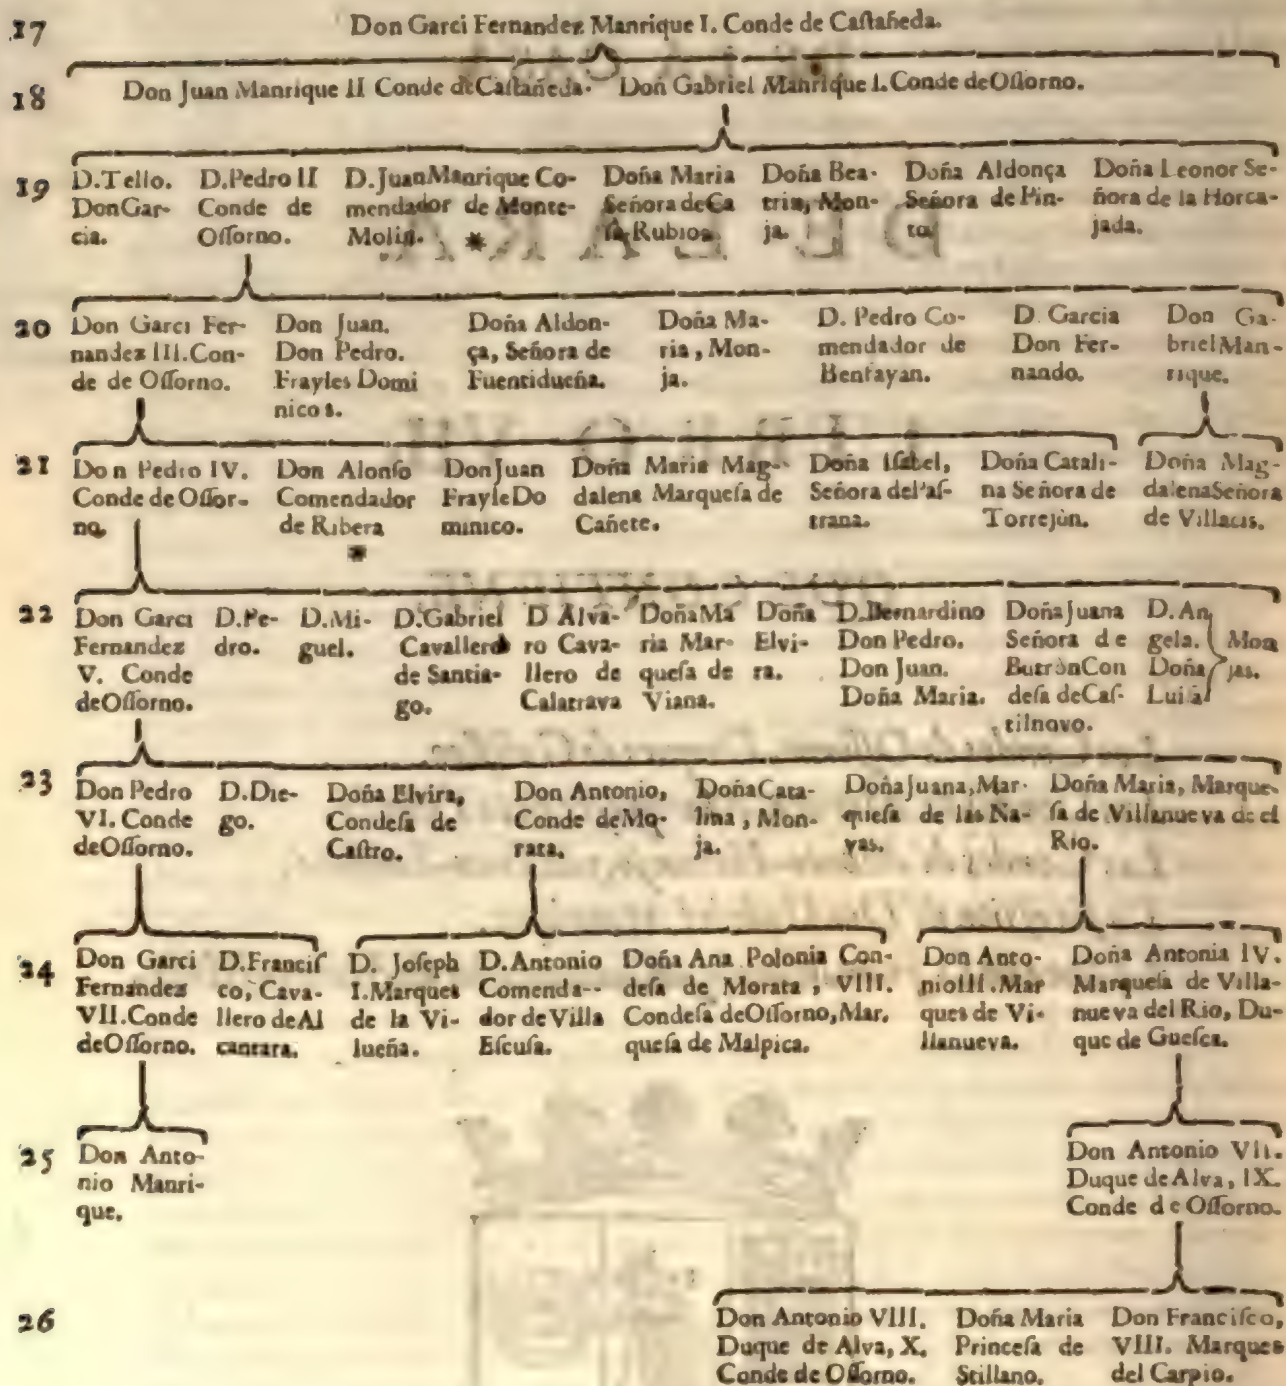 17 Don Garci Fernandez Manrique I. Conde de Caſtañeda.
18 Don Juan Manrique II Conde de Caſtañeda. Don Gabriel Manrique I. Conde de Oſſorno.
19
D. Tello.
Don Gar-
cia.
D. Pedro II
Conde de
Oſſorno.
D. Juan Manrique Co-
mendador de Monte-
Molin.
*
Doña Maria
Señora de Ca
ſa-Rubios.
Doña Bea-
triz, Mon-
ja.
Doña Aldonça
Señora de Pin-
to.
Doña Leonor Se-
ñora de la Horca-
jada.
20
Don Garci Fer-
nandez III. Con-
de de Oſſorno.
Don Juan.
Don Pedro.
Frayles Domi
nicos.
Doña Aldon-
ça, Señora de
Fuentidueña.
Doña Ma-
ria, Mon-
ja.
D. Pedro Co-
mendador de
Benfayan.
D. Garcia
Don Fer-
nando.
Don Ga-
briel Man-
rique.
21
Don Pedro IV.
Conde de Oſſor-
no.
Don Alonſo
Comendador
de Ribera
*
Don Juan
Frayle Do
minico.
Doña Maria Mag-
dalena Marqueſa de
Cañete.
Doña Iſabel,
Señora de Paſ-
trana.
Doña Catali-
na Señora de
Torrejòn.
Doña Mag-
dalena Señora
de Villacis.
22
Don Garci
Fernandez
V. Conde
de Oſſorno.
D. Pe-
dro.
D. Mi-
guel.
D. Gabriel
Cavallero
de Santia-
go.
D Alva-
ro Cava-
llero de
Calatrava
Doña Ma
ria Mar-
queſa de
Viana.
Doña
Elvi-
ra.
D. Bernardino
Don Pedro.
Don Juan.
Doña Maria.
Doña Juana
Señora de
Butròn Con
deſa de Caſ-
tilnovo.
D. An
gela.
Doña
Luiſa
Mon
jas.
23
Don Pedro
VI. Conde
de Oſſorno.
D. Die-
go.
Doña Elvira,
Condeſa de
Caſtro.
Don Antonio,
Conde de Mo-
rata.
Doña Cata-
lina, Mon-
ja.
Doña Juana, Mar-
queſa de las Na-
vas.
Doña Maria, Marque-
ſa de Villanueva de el
Rio.
24
Don Garci
Fernandez
VII. Conde
de Oſſorno.
D. Franciſ
co, Cava-
llero de Al
cantara.
D. Joſeph
I. Marques
de la Vi-
lueña.
D. Antonio
Comenda--
dor de Villa
Eſcuſa.
Doña Ana Polonia Con-
deſa de Morata, VIII.
Condeſa de Oſſorno, Mar.
queſa de Malpica.
Don Anto-
nio III. Mar
ques de Vi-
llanueva.
Doña Antonia IV.
Marqueſa de Villa-
nueva del Rio, Du-
que de Gueſca.
25
Don Anto-
nio Manri-
que.
Don Antonio VII.
Duque de Alva, IX.
Conde de Oſſorno.
26
Don Antonio VIII.
Duque de Alva, X.
Conde de Oſſorno.
Doña Maria
Princeſa de
Stillano.
Don Franciſco,
VIII. Marques
del Carpio.